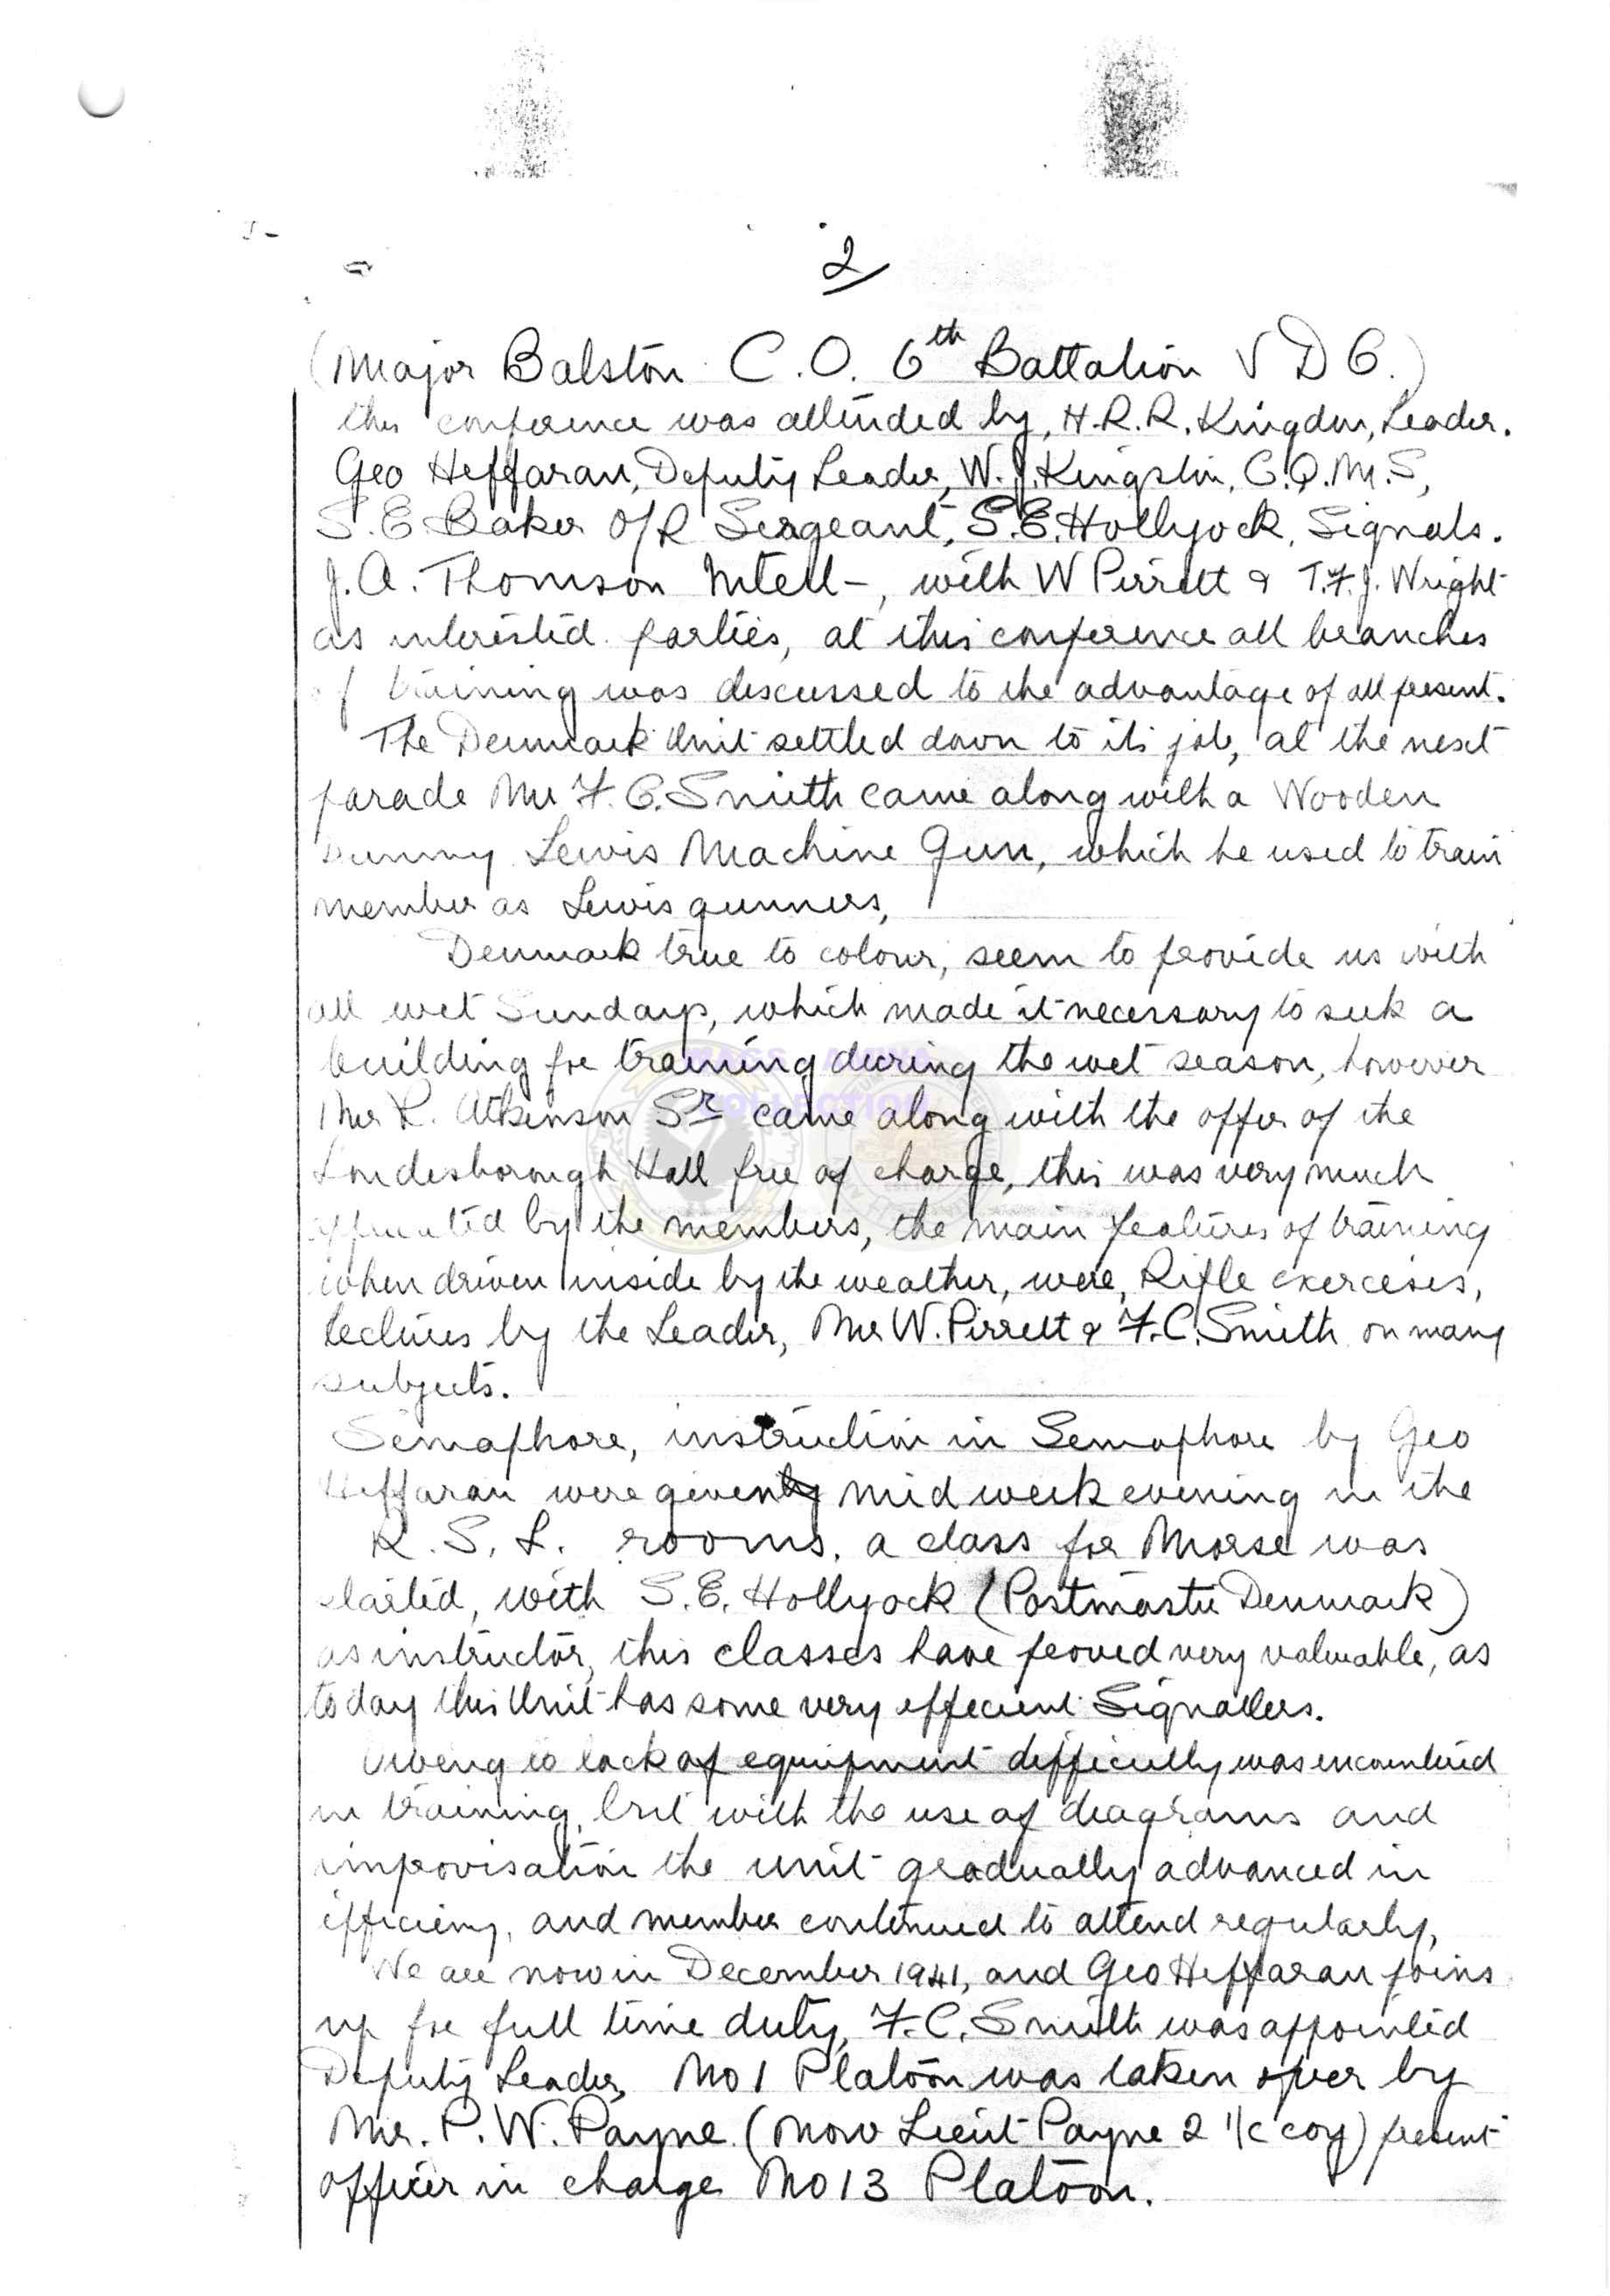 2
(Major Balston C.O. 6th Battalion V D C.)
this conference was attended by, H.R.R. Kingdon, Leader.
Geo Heffaran, Deputy Leader, W.J. Kingston, C.Q.M.S,
S.E. Baker O/R Sergeant, S.E. Hollyock, Signals.
J.A. Thomson Intell-, with W Pirrett & T.F.J. Wright
as interested parties, at this conference all branches
of training was discussed to the advantage of all present.
The Denmark Unit settled down to its job, at the next
parade Mr F.C. Smith came along with a Wooden
Dummy Lewis Machine Gun, which he used to train
member as Lewis gunners,
Denmark true to colour, seem to provide us with
all wet Sundays, which made it necessary to seek a
building for training during the wet season, however
Mr R. Atkinson Sr came along with the offer of the
Londesborough Hall free of charge, this was very much
by the members, the main features of training
when driven inside by the weather, were, Rifle exercises,
lectures by the Leader, Mr W. Pirrett & F.C. Smith on many
subjects.
Semaphore, instruction in Semaphore by Geo
Heffaran were given mid week evening in the
R.S.L. rooms. a class for Morse was
started, with S.E. Hollyock (Postmaster Denmark)
as instructor, this classes have proved very valuable, as
today this Unit has some very effecient Signallers.
Oweing to lack of equipment difficulty was encountered
in training, but with the use of diagrams and
improvisation the unit gradually advanced in
efficieny, and member continued to attend regularly,
We are now in December 1941, and Geo Heffaran joins
up for full time duty, F.C. Smith was appointed
Deputy Leader, No 1 Platoon was taken over by
Mr. P.W. Payne (now Lieut Payne 2 I/c coy) present
officer in charge No 13 Platoon.
MASS AMWA
COLLECTION